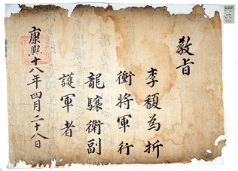 敎旨
李穎爲折
衝將軍行
龍驤衛副
護軍者
康熙十八年四月二十八日